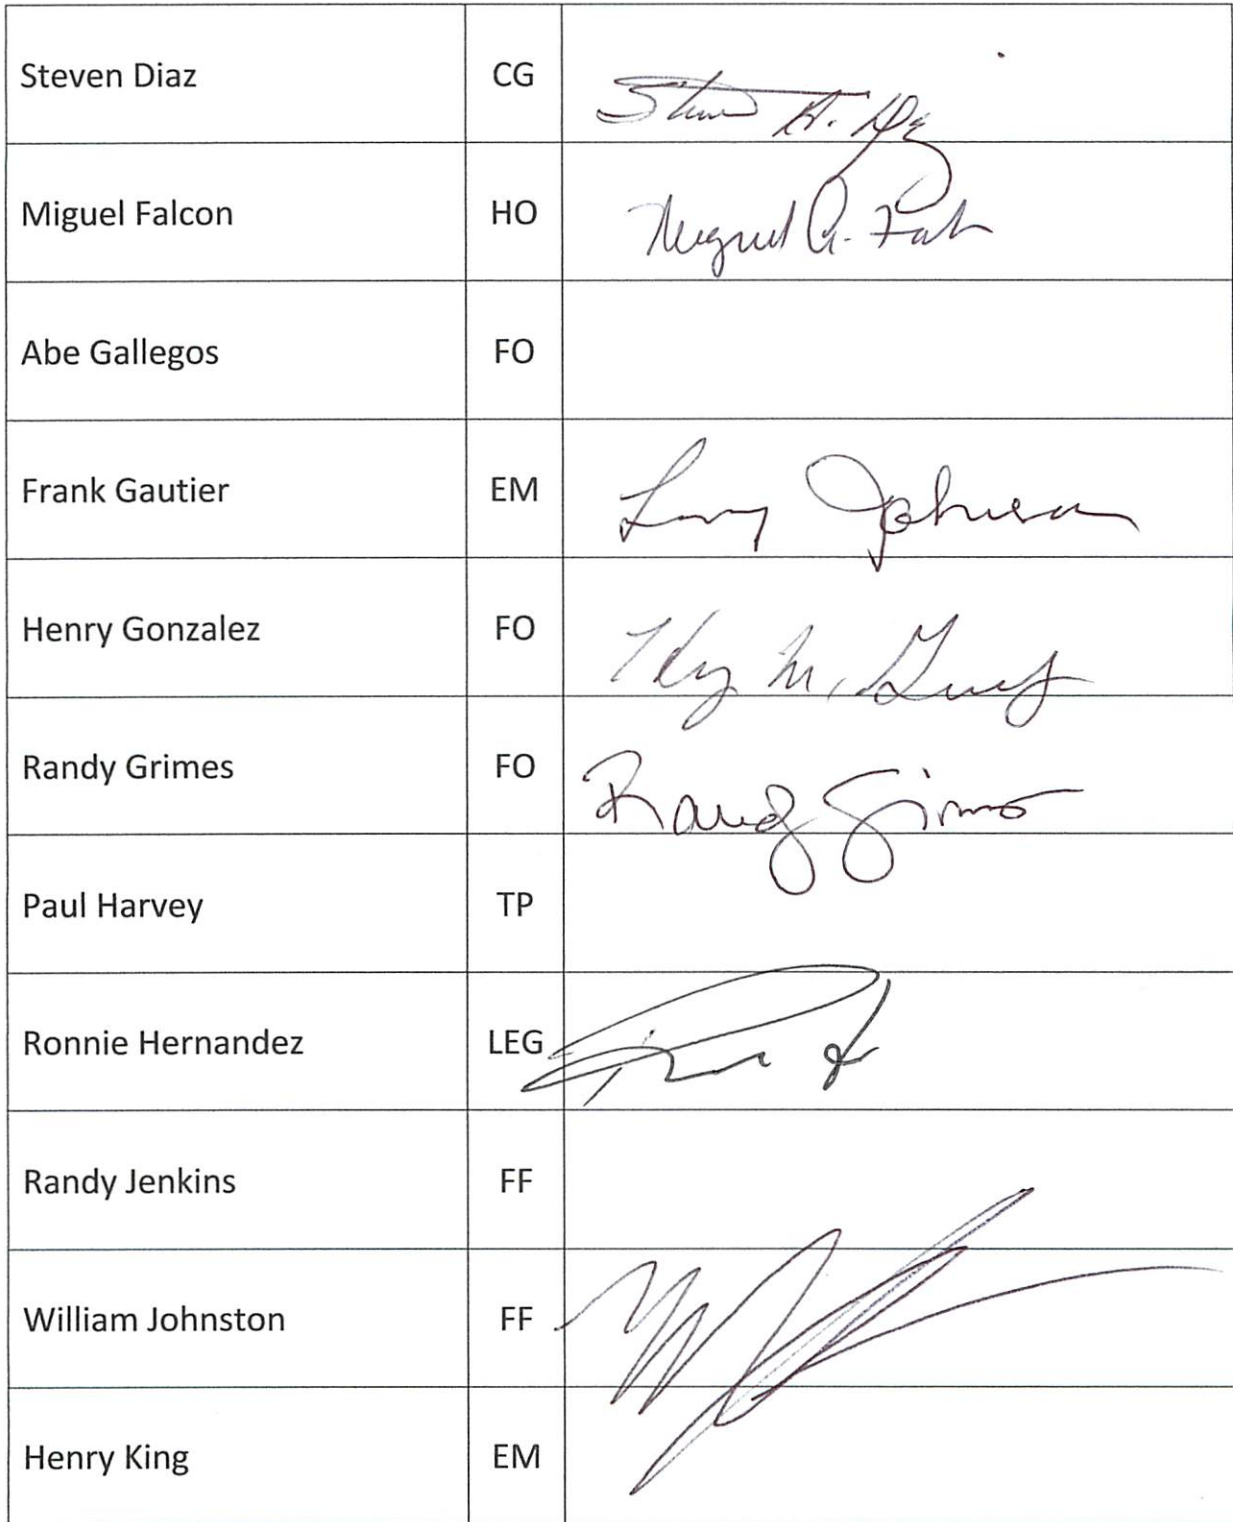 Steven Diaz CG
Miguel Falcon HO Miguel A. Falcon
Abe Gallegos FO
Frank Gautier EM Larry Johnson
Henry Gonzalez FO
Randy Grimes FO Randy Grimes
Paul Harvey TP
Ronnie Hernandez LEG
Randy Jenkins FF
William Johnston FF
Henry King EM